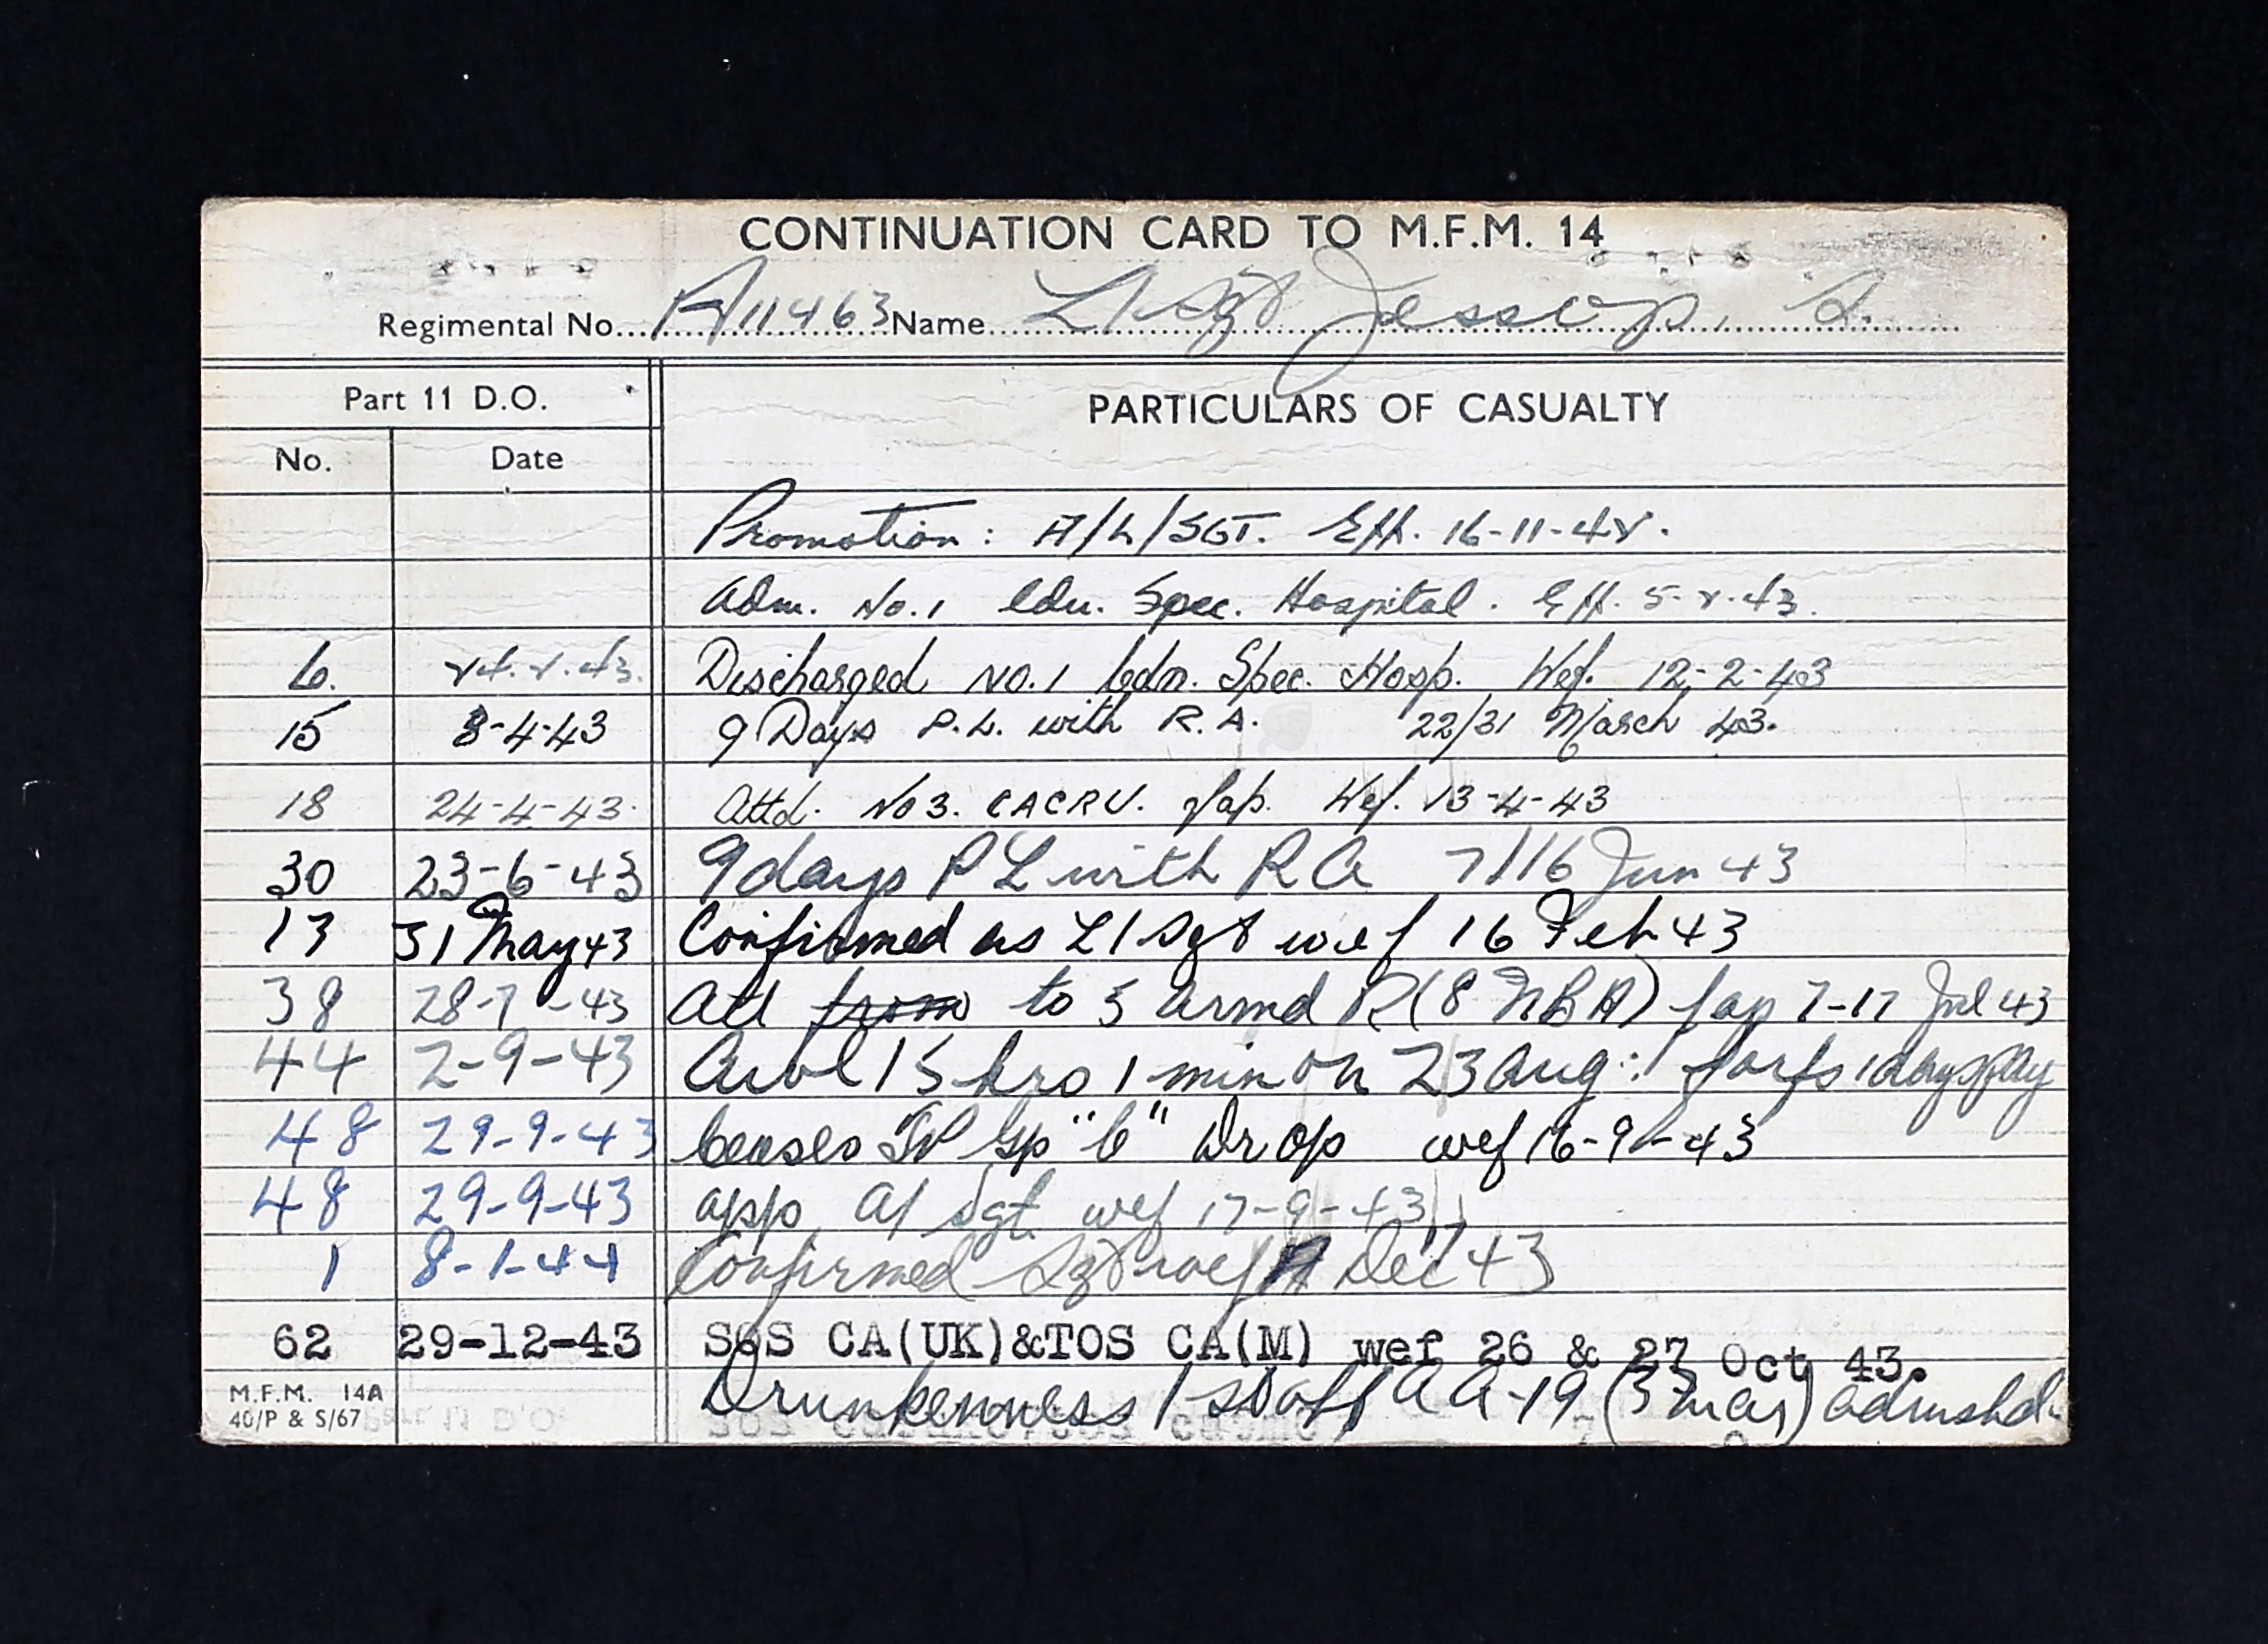 CONTINUATION CARD TO M.F.M. 14
Regimental No. A11463 Name L/Sgt Jessop, A.
Part 11 D.O. PARTICULARS OF CASUALTY
No. Date
Promotion: A/L/SGT. Eff. 16-11-42.
Adm. No. 1 Cdn. Spec. Hospital. Eff. 5-2-43.
6. 24.2.43. Discharged No. 1 Cdn. Spec. Hosp. Wef. 12-2-43
15 8-4-43 9 Days P.L. with R.A. 22/31 March 43.
18 24-4-43 Attd. No 3. CACRU. fap. Wef. 13-4-43
30 23-6-43 9 days P L with R A 7/16 Jun 43
13 31 May 43 Confirmed as L/Sgt wef 16 Feb 43
38 28-7-43 Att from to 5 Armd R (8 NBH) fap 7-17 Jul 43
44 2-9-43 Awol 15 hrs 1 min on 23 Aug: forfs 1 days pay
48 29-9-43 Ceases TP Gp "C" Dr Op wef 16-9-43
48 29-9-43 app A/Sgt wef 17-9-43
1 8-1-44 Confirmed Sgt wef 17 Dec 43
62 29-12-43 SOS CA(UK)&TOS CA(M) wef 26 & 27 Oct 43.
Drunkenness A A-19 (3 mar)
M.F.M. 14A
40/P & S/67